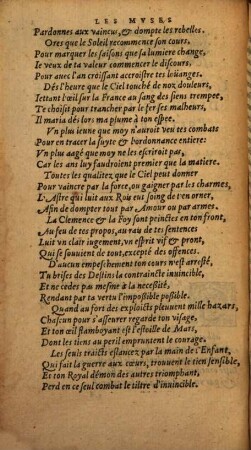 LES MVSES
Pardonnes aux vaincus, & dompte les rebelles.
Ores que le Soleil recommence son cours,
Pour marquer les saisons que sa lumiere change,
Ie veux de ta valeur commencer le discours,
Pour auec l'an croissant accroistre tes loüanges.
Dés l'heure que le Ciel touché de noz douleurs,
Iettant l'œil sur la France au sang des siens trempee,
Te choisit pour trancher par le fer ses malheurs,
Il maria dés lors ma plume à ton espee.
Vn plus ieune que moy n'auroit veu tes combats
Pour en tracer la suyte & l'ordonnance entiere:
Vn plus aagé que moy ne les escriroit pas,
Car les ans luy faudroient premier que la matiere.
Toutes les qualitez que le Ciel peut donner
Pour vaincre par la force, ou gaigner par les charmes,
L'Astre qui luit aux Rois eut soing de t'en orner,
Afin de dompter tout par Amour ou par armes.
La Clemence & la Foy sont peinctes en ton front,
Au feu de tes propos, au rau de tes sentences
Luit vn clair iugement, vn esprit vif & pront,
Qui se souuient de tout, excepté des offences.
D'aucun empeschement ton cours n'est arresté,
Tu brises des Destins la contraincte inuincible,
Et ne cedes pas mesme à la necessité,
Rendant par ta vertu l'impossible possible.
Quand au fort des exploicts pleuuent mille hazars,
Chascun pour s'asseurer regarde ton visage,
Et ton œil flamboyant est l'estoille de Mars,
Dont les tiens au peril empruntent le courage.
Les seuls traicts eslancez par la main de l'Enfant,
Qui fait la guerre aux cœurs, trouuent le tien sensible,
Et ton Royal démon des autres triomphant,
Perd en ce seul combat le tiltre d'inuincible.